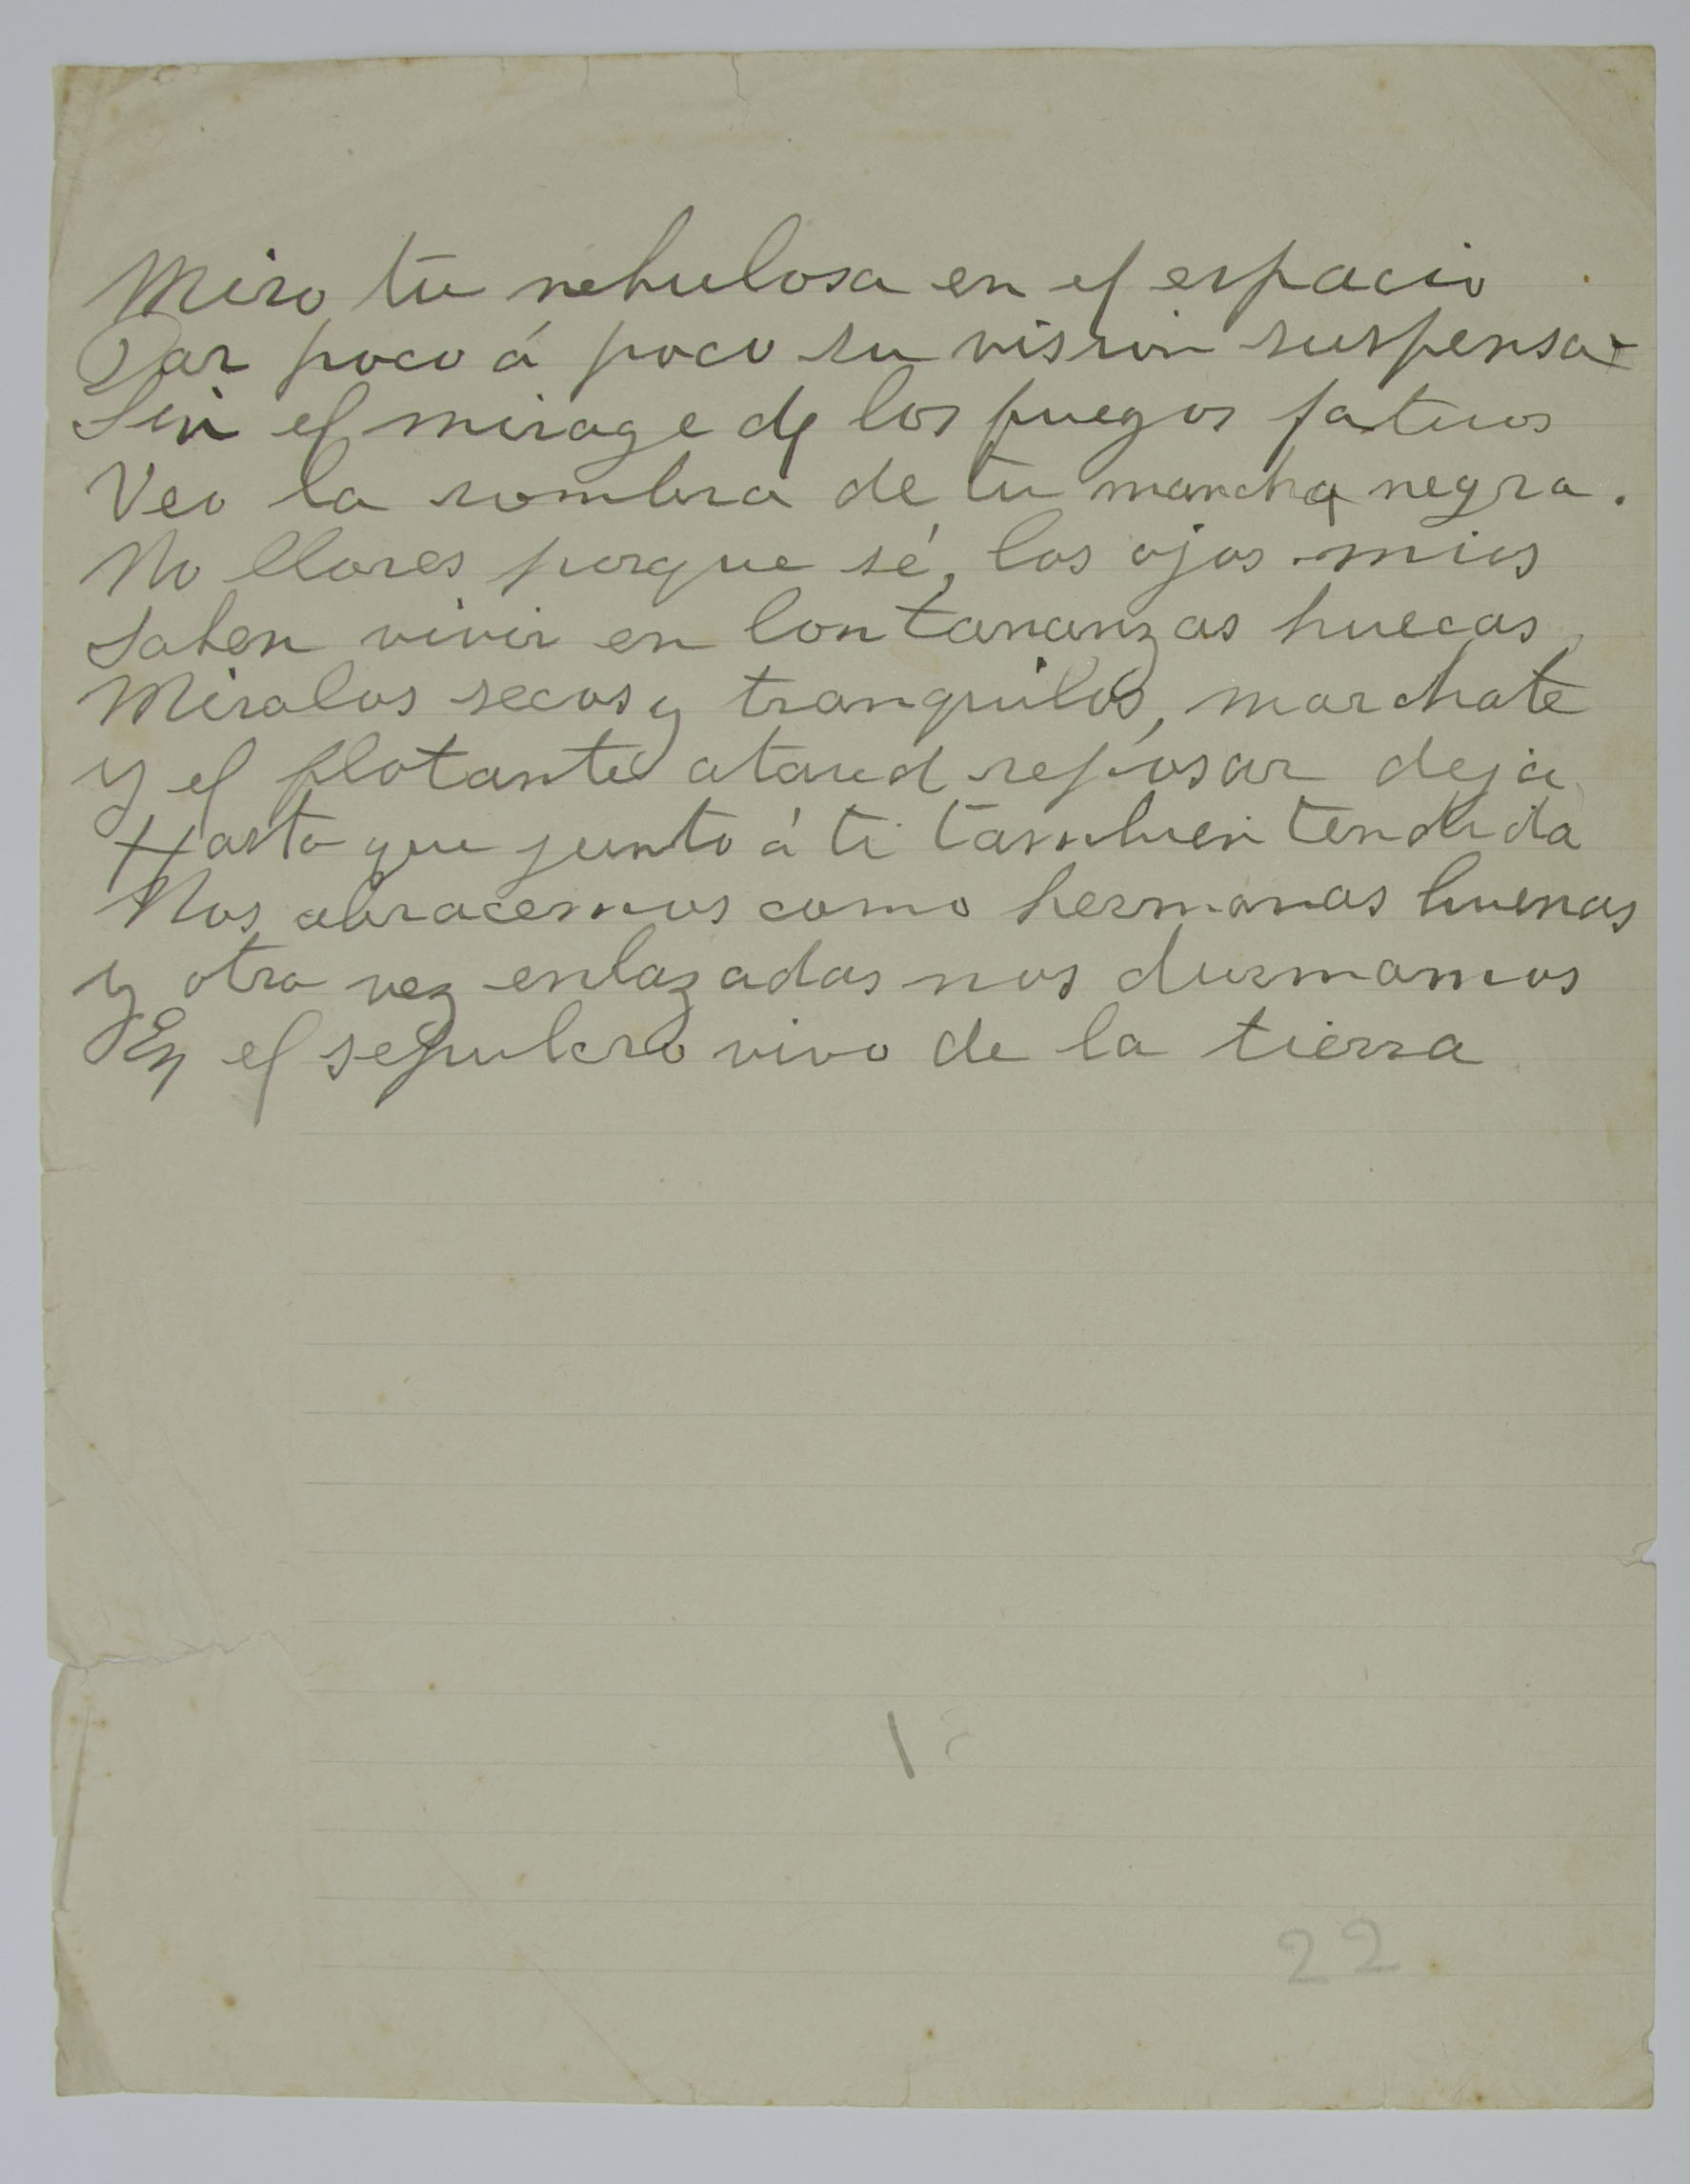 Miro tu nebulosa en el espacio
Dar poco á poco su vision suspensa
Sin el mirage de los fuegos fatuos
Veo la sombra de tu mancha negra.
No llores porque sé, los ojos mios
Saben vivir en lontananzas huecas,
Miralos secos y tranquilos, marchate
y el flotante ataud reposar deja
Hasta que junto á ti tambien tendida
Nos abracemos como hermanas buenas
y otra vez enlazadas nos durmamos
En el sepulcro vivo de la tierra
22